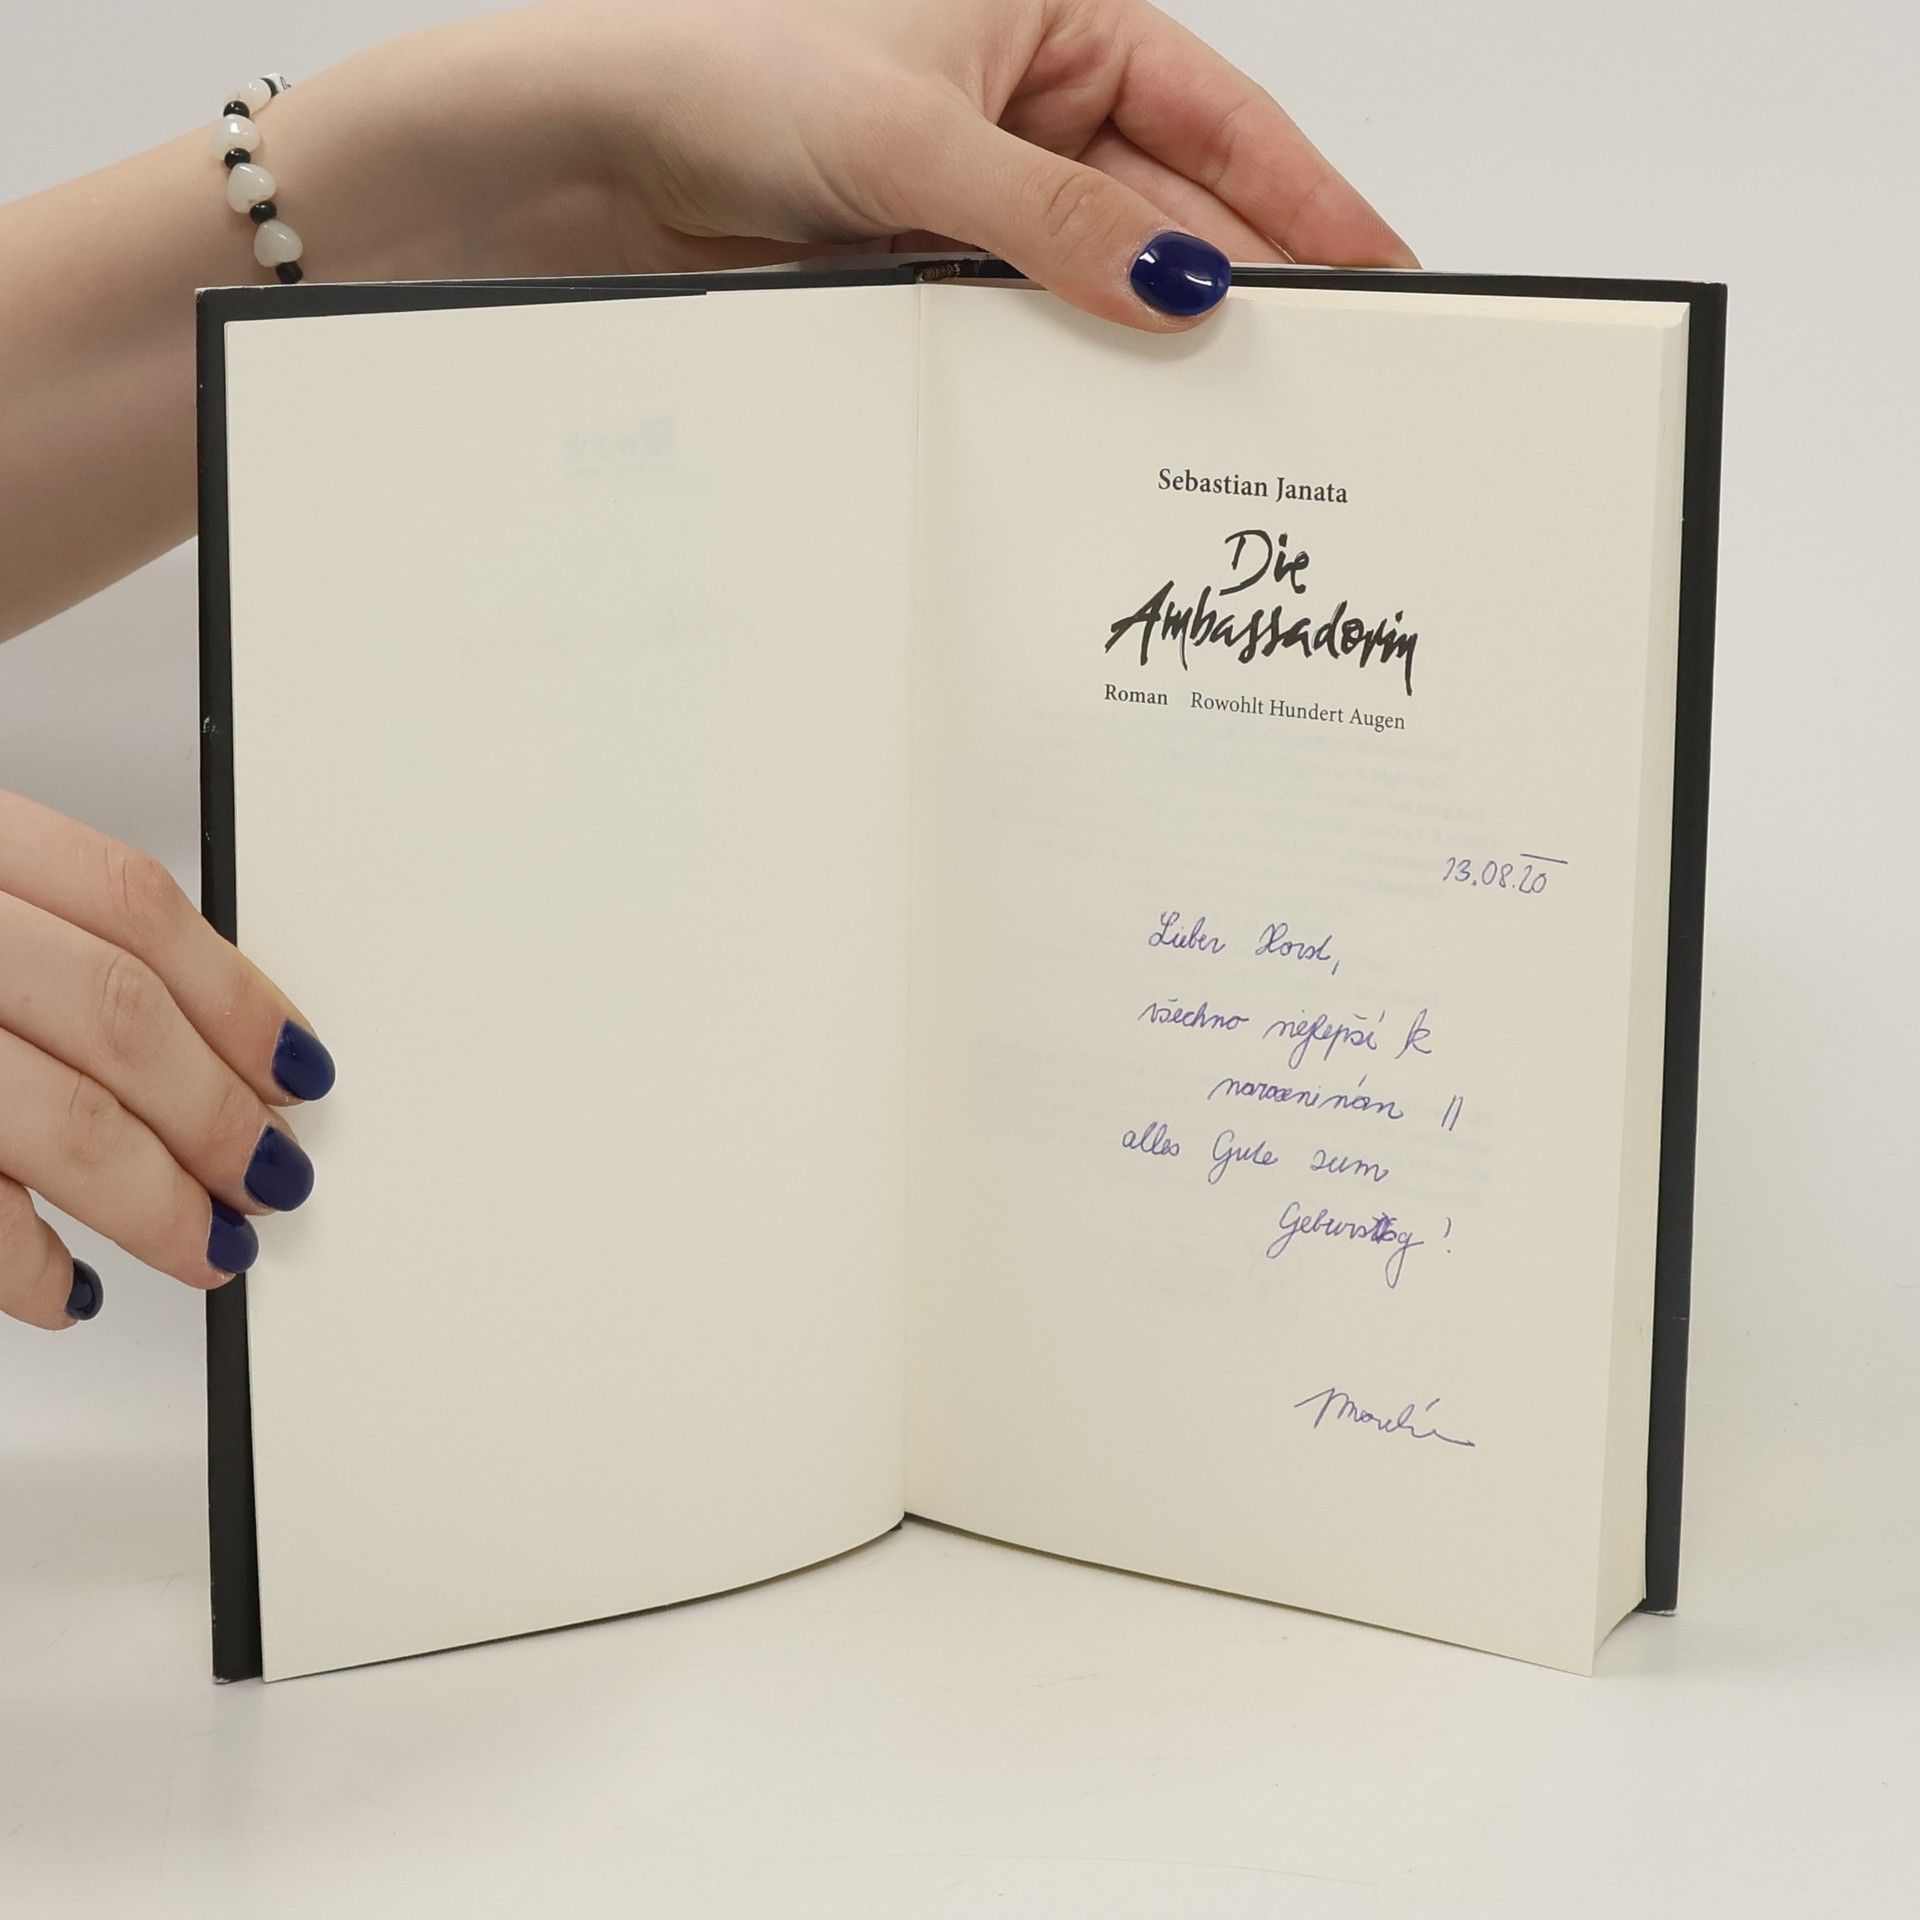 Sebastian Janata
Die
Ambassadorin
Roman Rowohlt Hundert Augen
13.08.20
Lieber Horst,
všechno nejlepší k
narozeninám //
alles Gute zum
Geburstag!